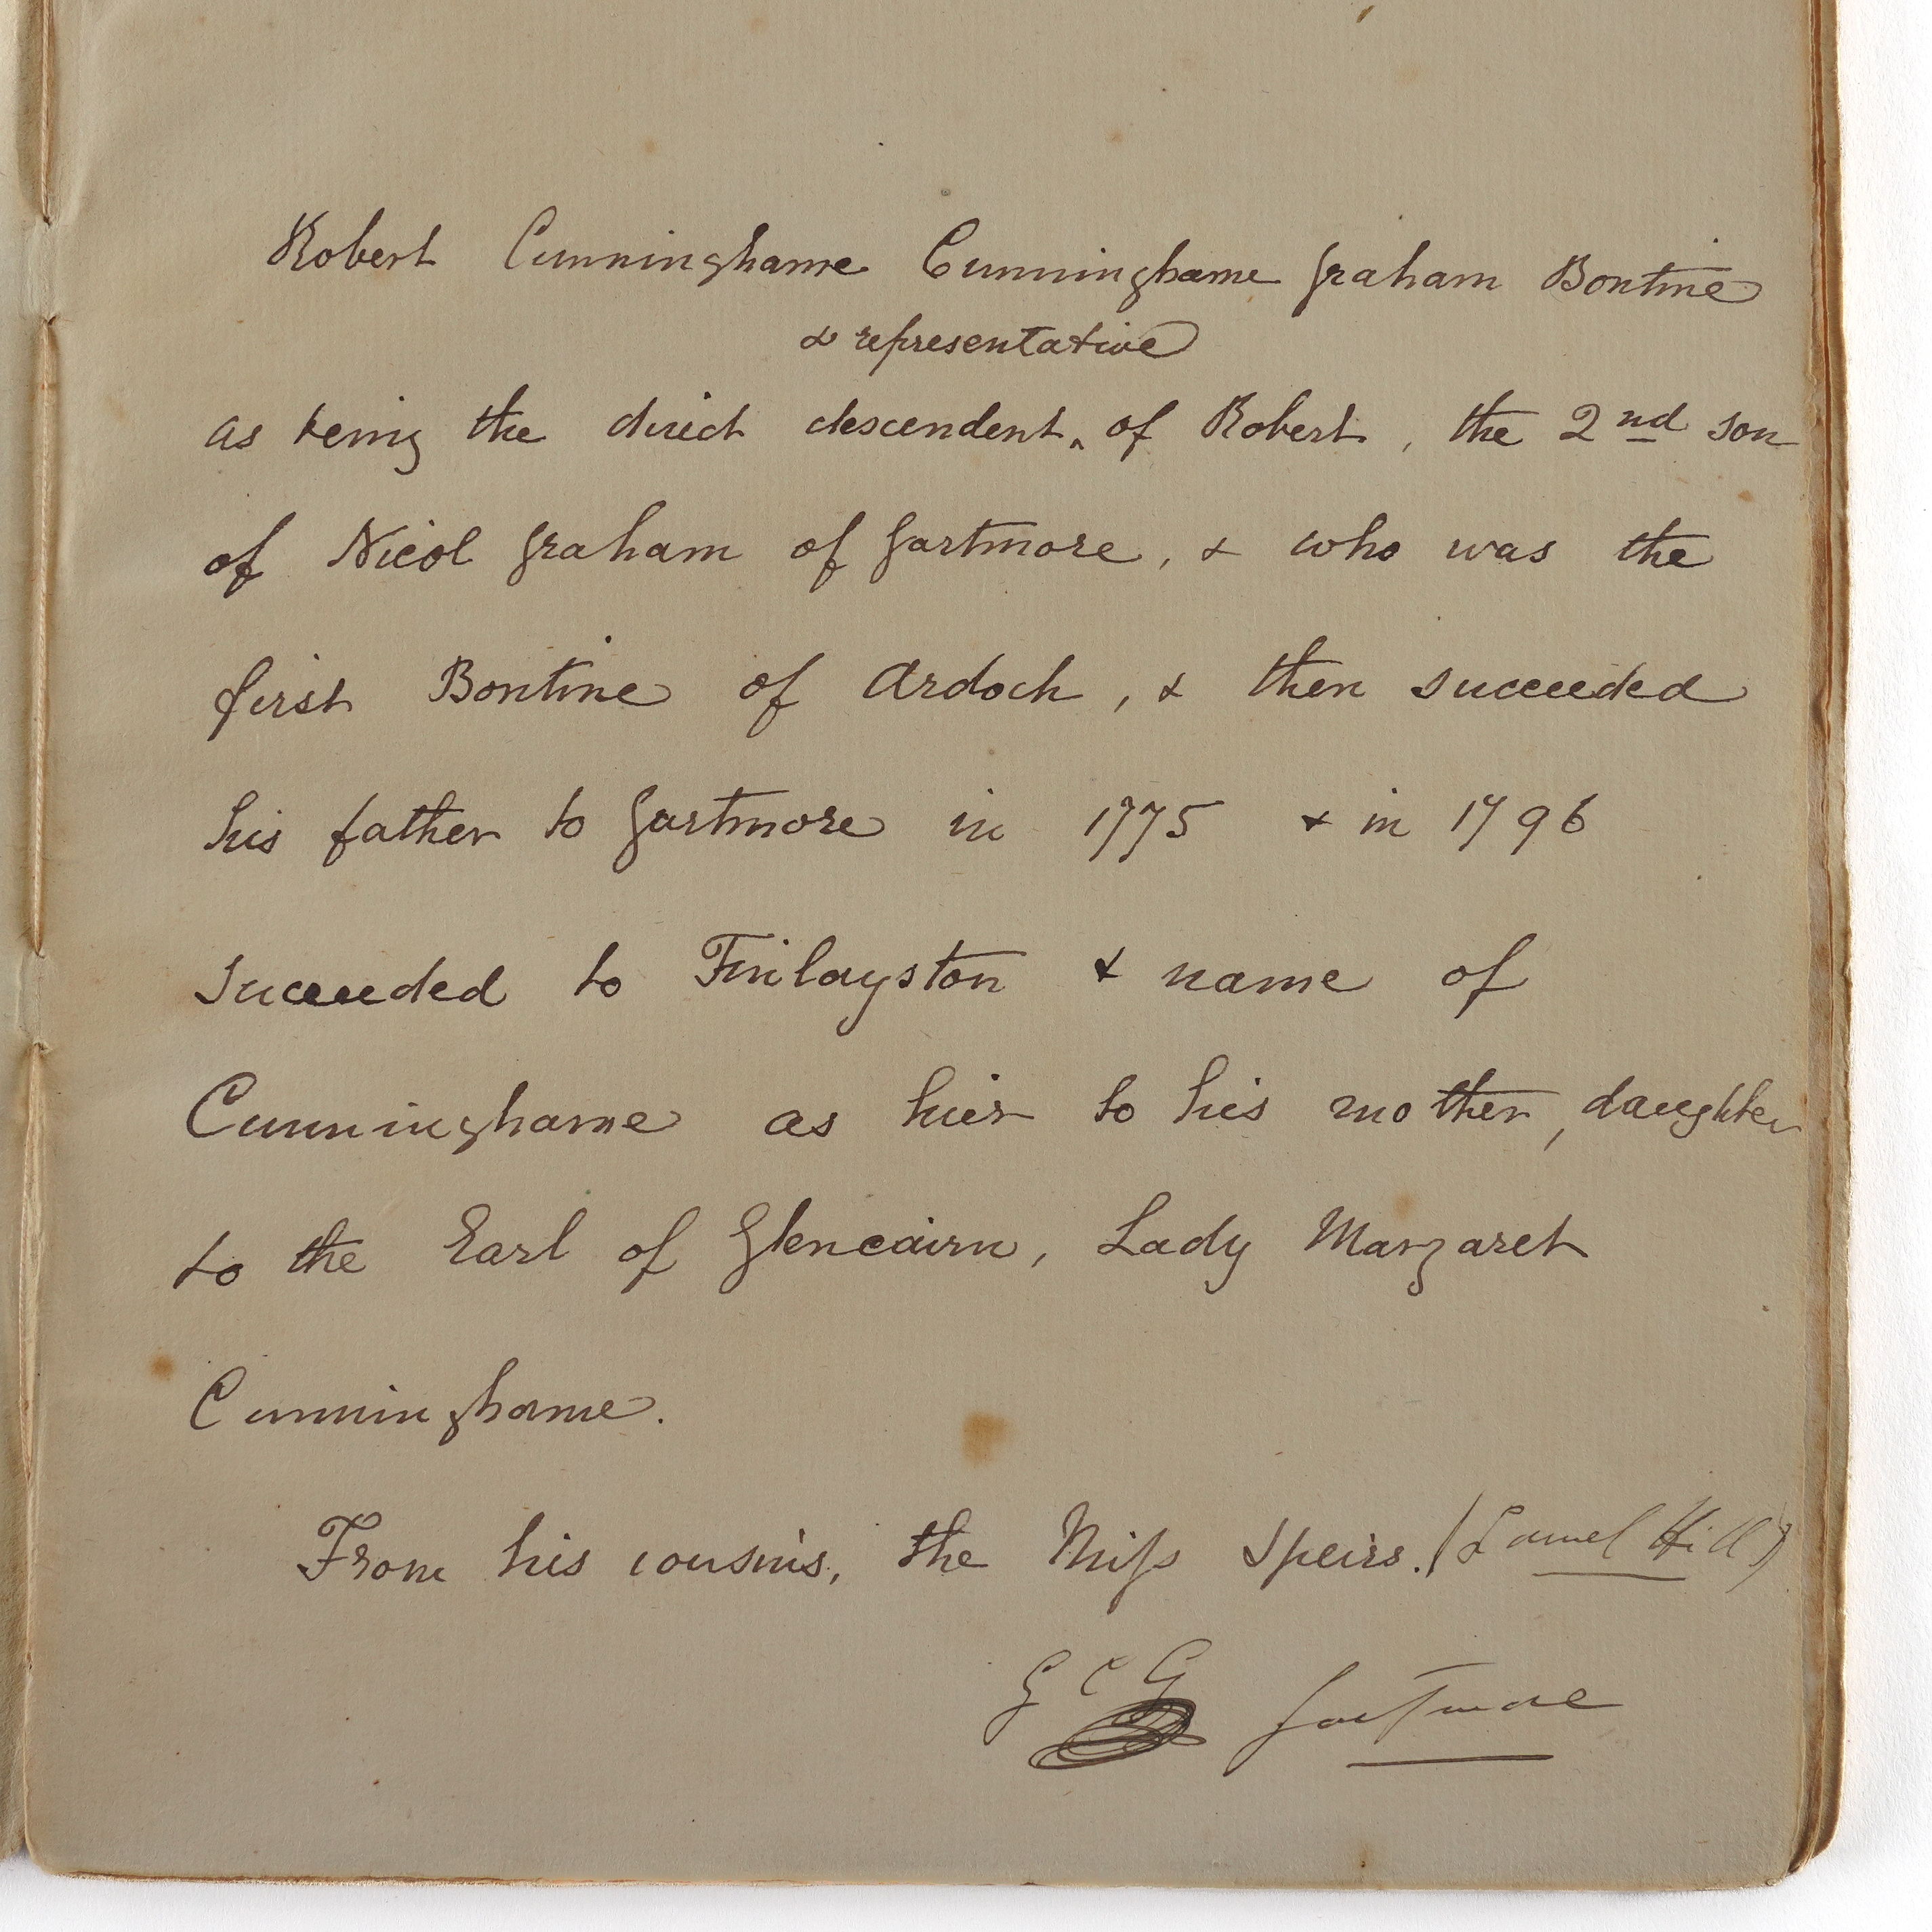 Robert Cunninghame Cunninghame Graham Bontine
& representative
as being the direct descendent ‸ of Robert, the 2nd son
of Nicol Graham of Gartmore, & who was the
first Bontine of Ardoch, & then succeeded
his father to Gartmore in 1775 & in 1796
succeeded to Finlayston & name of
Cunninghame as hier to his mother, daughter
to the Earl of Glencairn, Lady Margaret
Cunninghame.
From his cousins, the Miss Speirs. (Laurel Hill)
G C G Gartmore